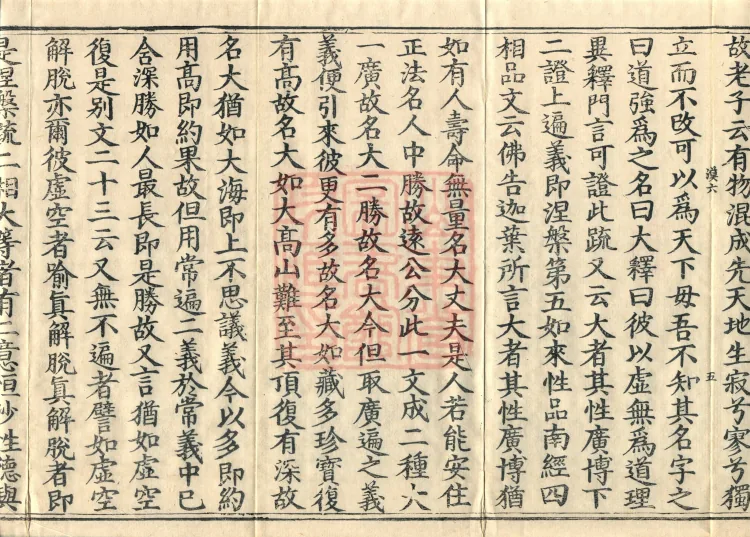 故老子云有物混成先天地生寂兮寥兮獨
漠六
五
立而不改可以爲天下母吾不知其名字之
曰道強爲之名曰大釋曰彼以虛無爲道理
異釋門言可證此䟽又云大者其性廣博下
二證上遍義即涅槃第五如來性品南經四
相品文云佛告迦葉所言大者其性廣博猶
如有人壽命無量名大丈夫是人若能安住
正法名人中勝故遠公分此一文成二種大
一廣故名大二勝故名大今但取廣遍之義
義便引來彼更有多故名大如藏多珍寶復
有高故名大如大高山難至其頂復有深故
名大猶如大海即上不思議義今以多即約
用高即約果故但用常遍二義於常義中已
舍深勝如人最長即是勝故又言猶如虛空
復是別文二十三云又無不遍者譬如虛空
解脫亦爾彼虛空者喻眞解脫眞解脫者即
是涅槃䟽二相大等者有二意恒沙性德與